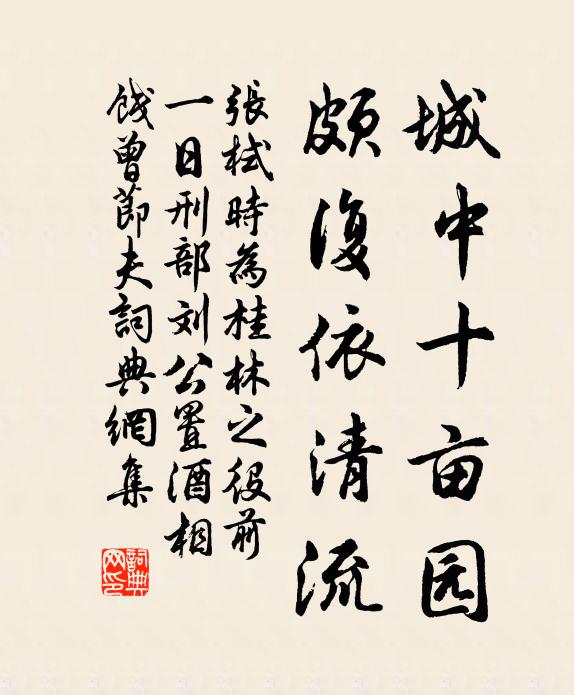 城中十亩园
颇復依清流
張栻時為桂林之役前
一日刑部刘公置酒相
餞曾節夫詞典網集
詞典網印